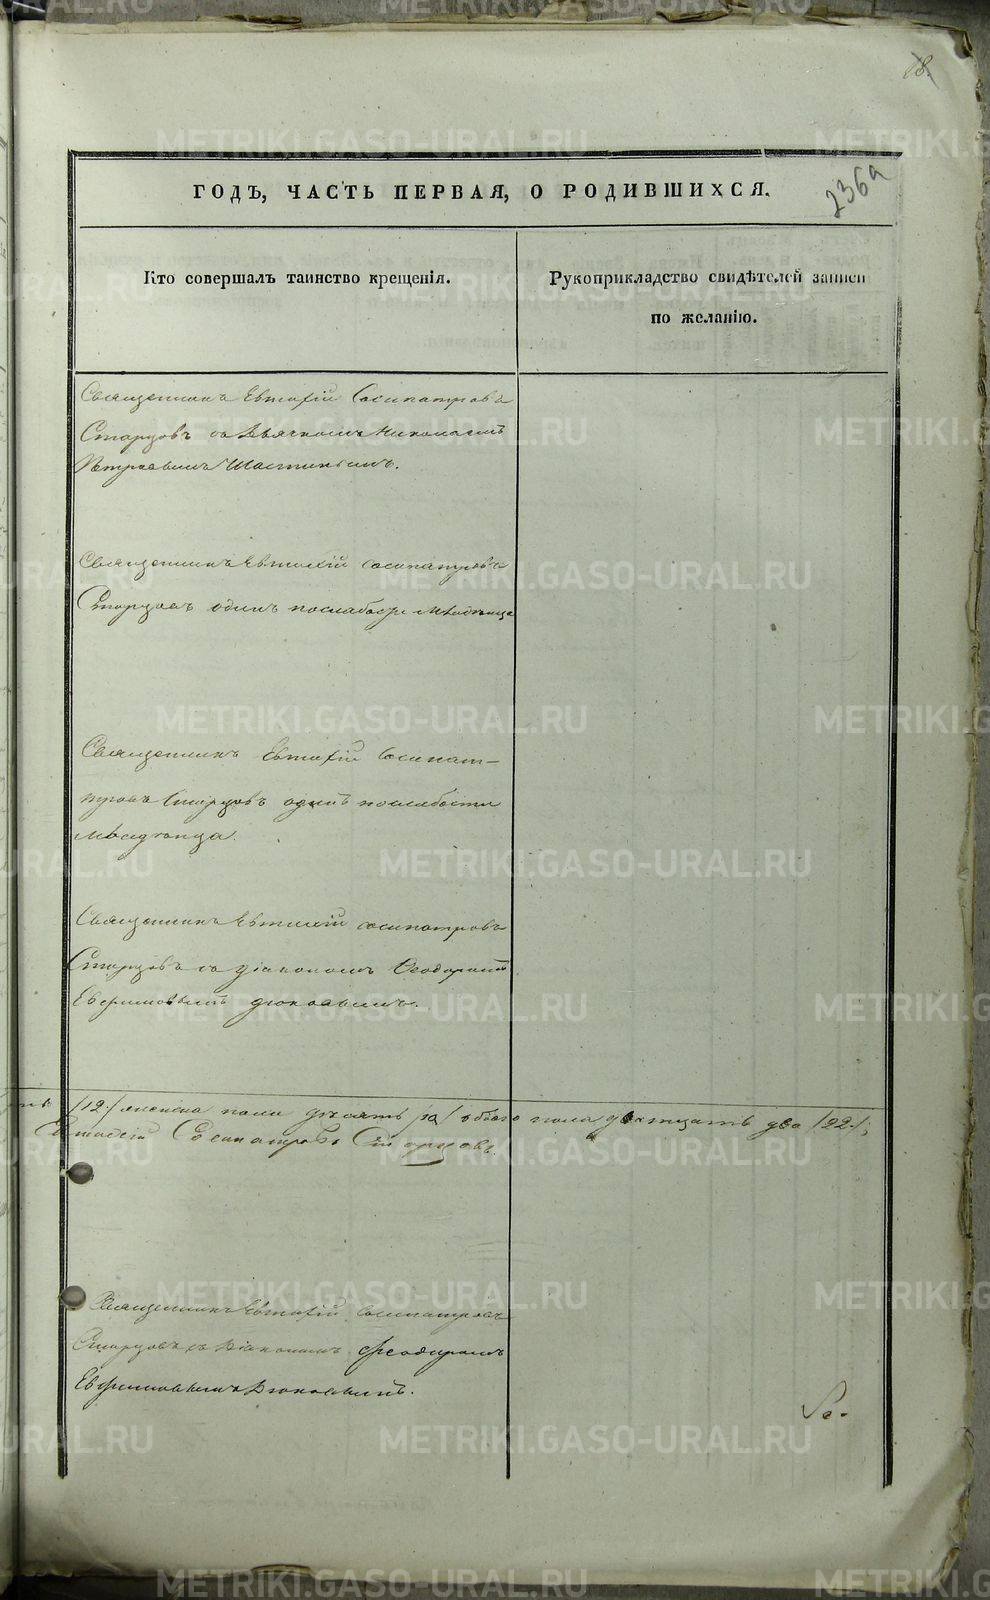 18.
236а
ГОДЪ, ЧАСТЬ ПЕРВАЯ, О РОДИВШИХСЯ.
Кто совершалъ таинство крещенія.
Рукоприкладство свидѣтелей записи
по желанію.
Священникъ Евтихій Сосипатровъ
Старцовъ съ Дьячкомъ Николаемъ
Петровымъ
Священникъ Евтихій Сосипатровъ
Старцовъ одинъ послабости младенца
Священникъ Евтихій Сосипат-
ровъ Старцовъ одинъ послабости
младенца.
Священникъ Евтихій Сосипатровъ
Старцовъ съ діакономъ Ѳеодоромъ
Евфимовымъ
/12./ женска пола десять /10/ обоего пола дватцать два /22./;
Евтихій Сосипатровъ Старцовъ.
Священникъ Евтихій Сосипатровъ
Старцовъ съ Діакономъ Феодоромъ
Евфимовымъ
METRIKI.GASO-URAL.RU